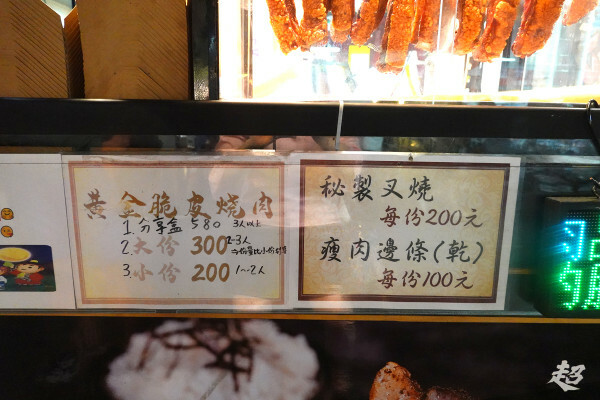 黃金脆皮燒肉
1.分享盒 580 3人以上
2.大份 300 2-3人
3.小份 200 1~2人
秘製叉燒
每份200元
瘦肉邊條(乾)
每份100元
超